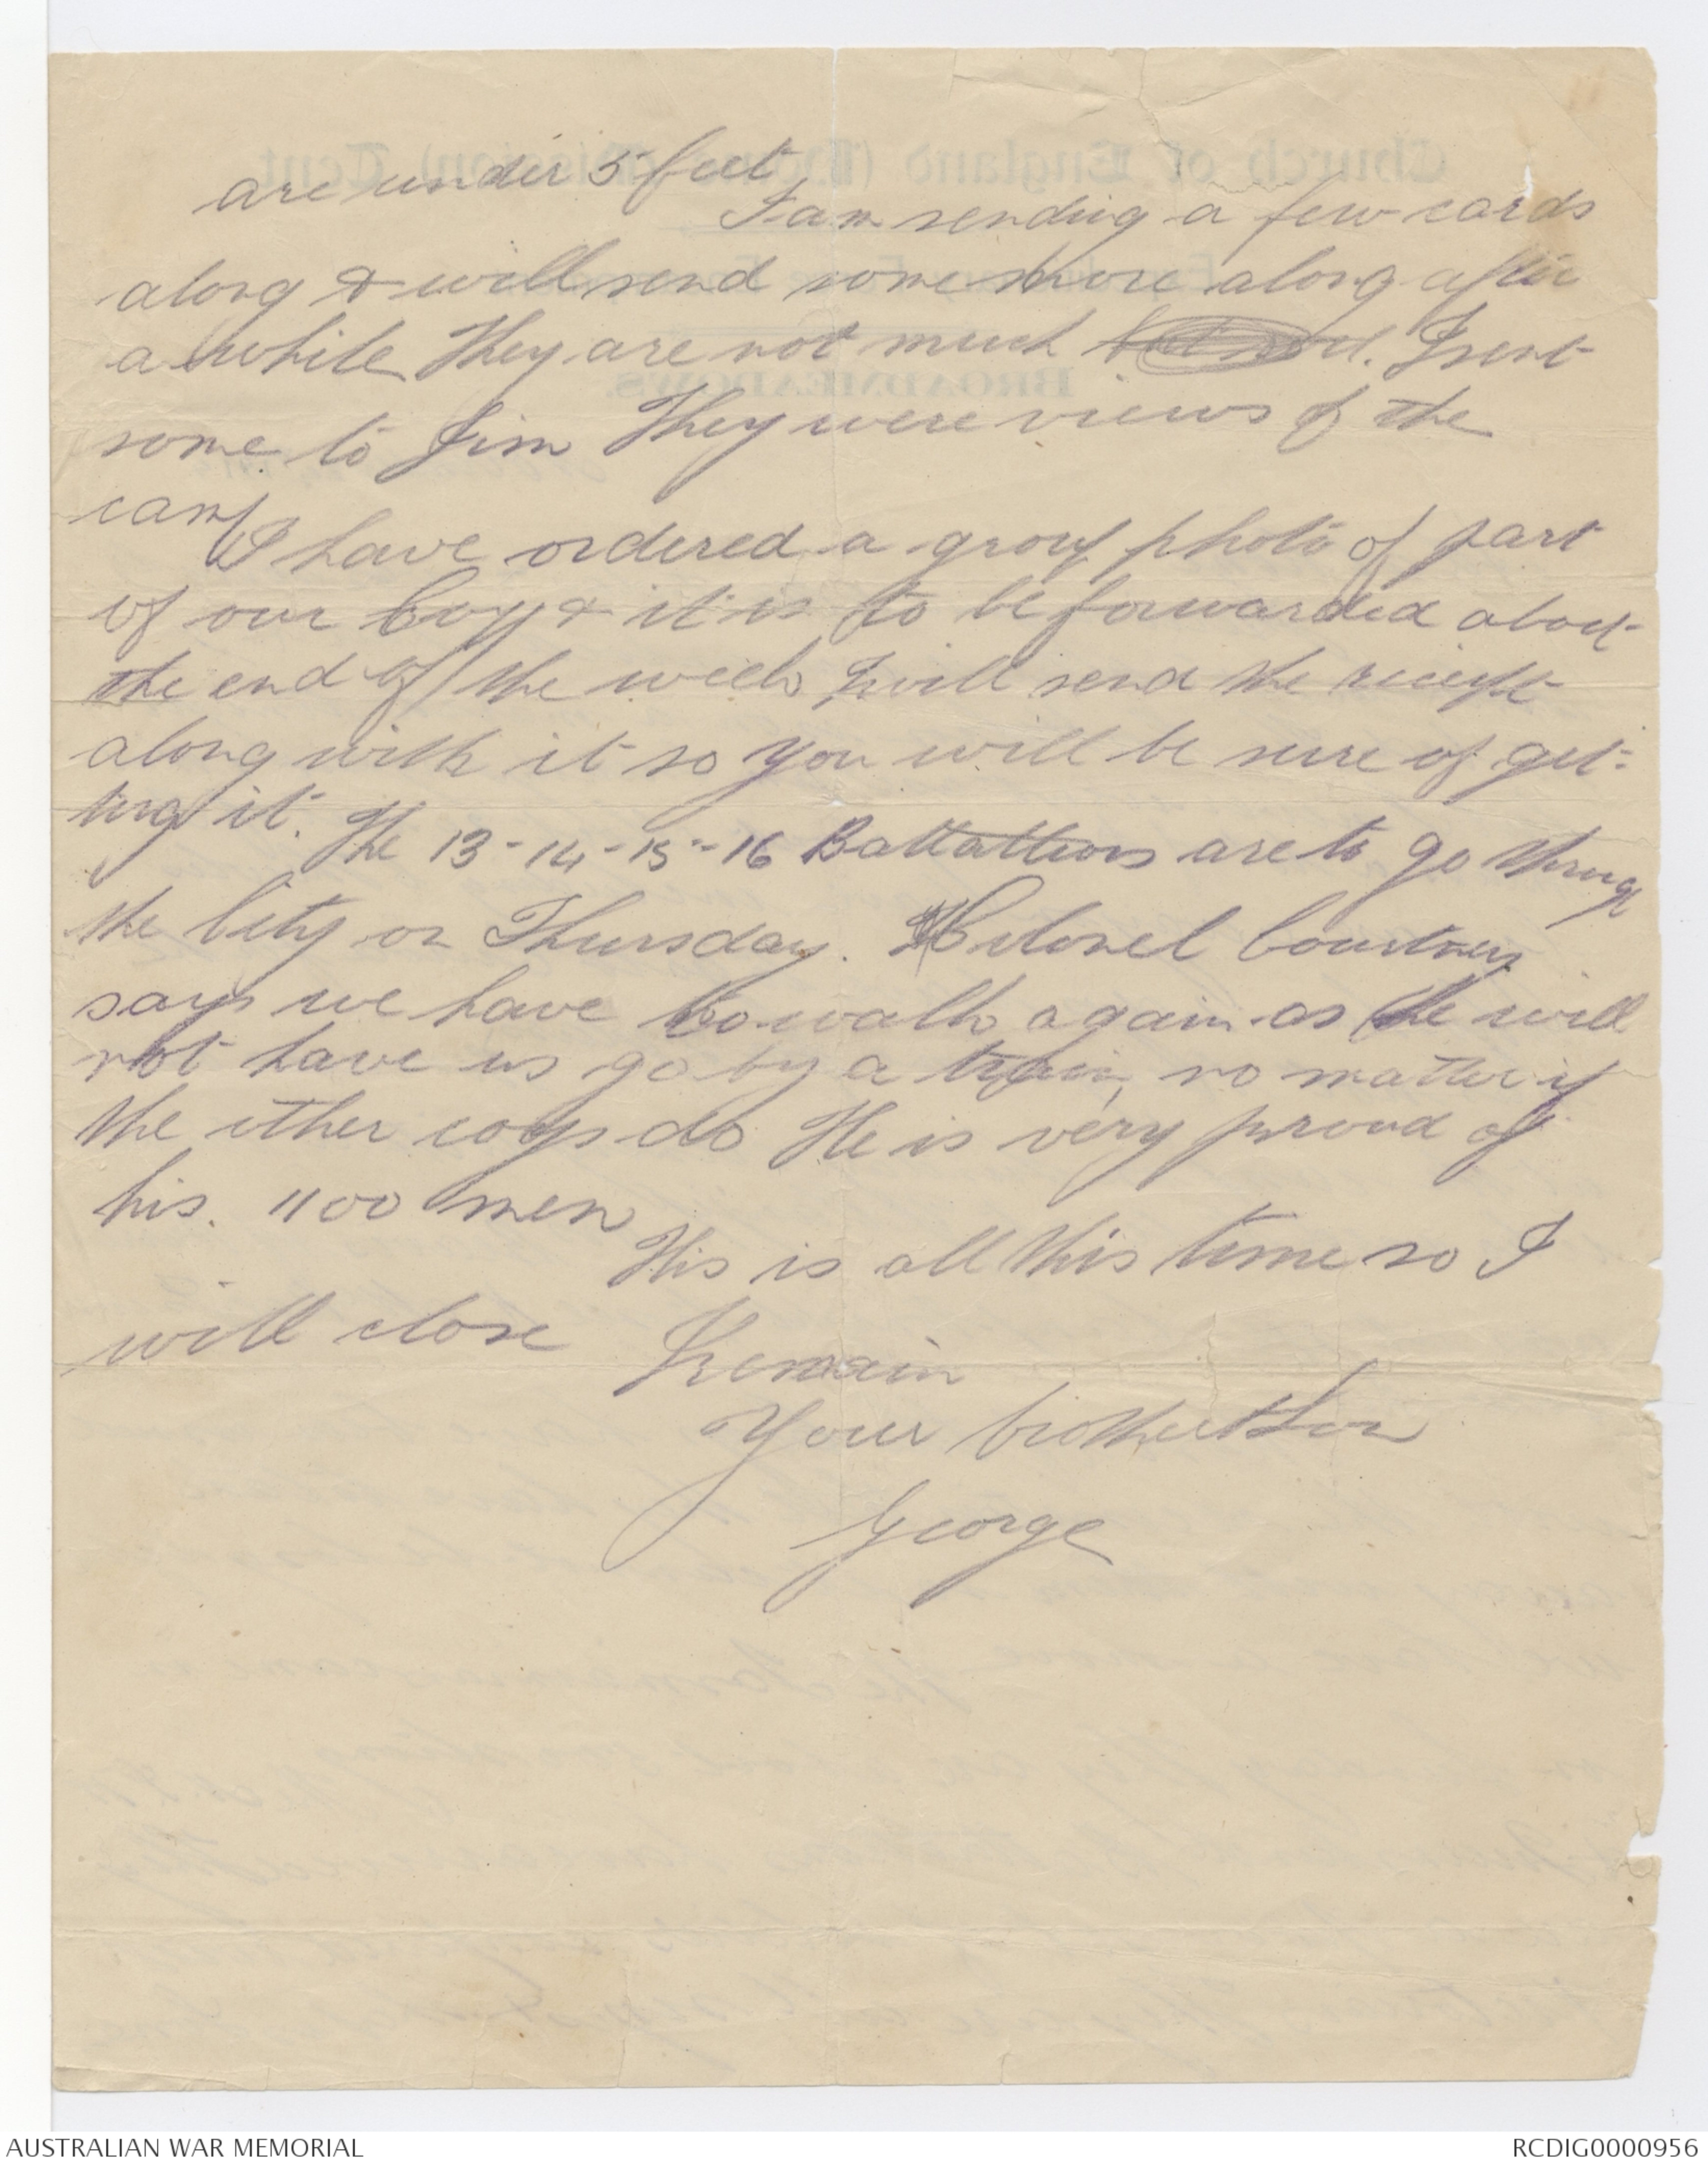 are under 5 feet
I am sending a few cards
along & will send some more along after
a while They are not much I sent
some to Jim They were views of the
camp
I have ordered a group photo of part
of our Coy & it is to be forwarded about
the end of the week I will send the reciept
along with it so you will be sure of get-
ting it. The 13-14-15-16 Battattions are to go through
the City on Thursday. Colonel Courtney
says we have to walk again as he will
not have us go by a train, no matter if
the other coys do He is very proud of
his. 1100 men
This is all this time so I
will close I remain
Your brother & Son
George
AUSTRALIAN WAR MEMORIAL
RCDIG0000956